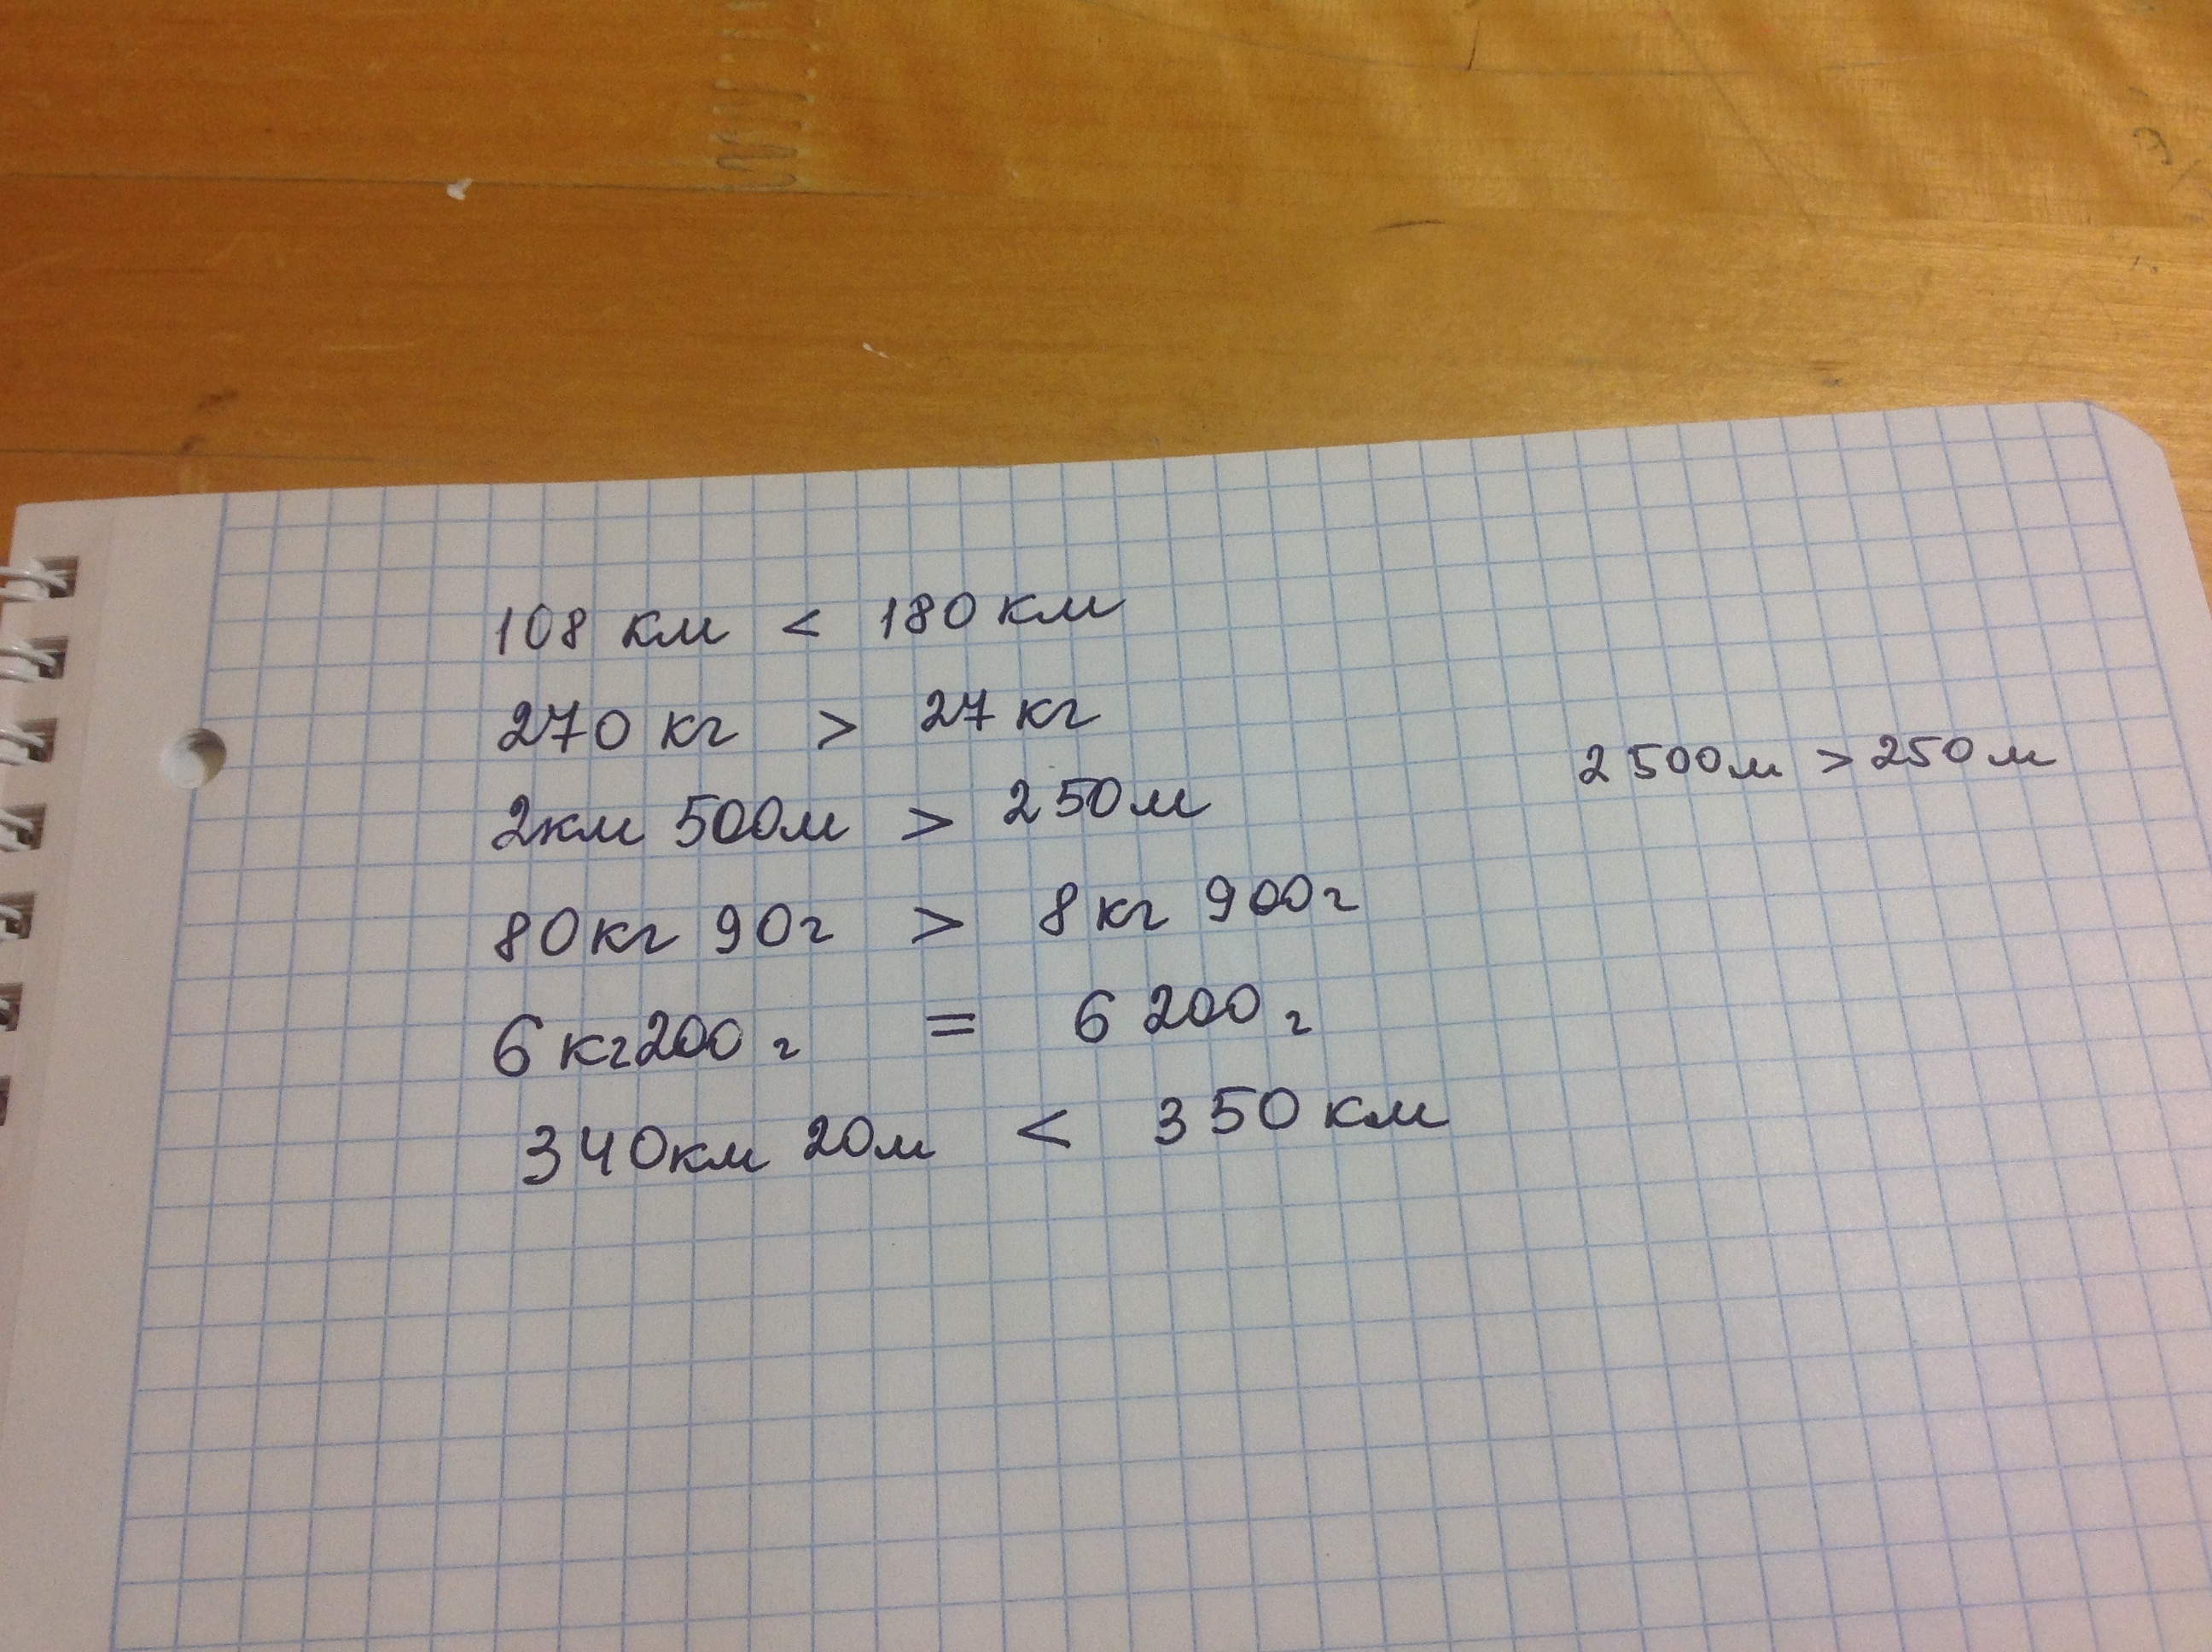 108 км < 180 км
270 кг > 27 кг
2км 500м > 250м
2 500м > 250м
80кг 90г > 8кг 900г
6 кг 200 г = 6 200 г
340км 20м < 350 км